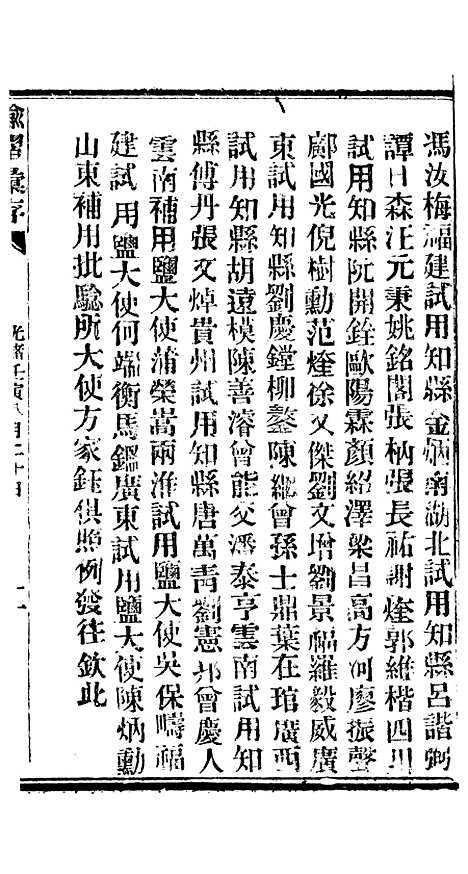 馮汝梅福建試用知縣金炳南湖北試用知縣呂諧弼
譚日森汪元秉姚銘閣張枘張長祐謝煃郭維楷四川
試用知縣阮開銓歐陽霖顏紹澤梁昌高方河廖振聲
鄺國光倪樹勳范煃徐文傑劉文增劉景福羅毅威廣
東試用知縣劉慶鏜柳鏊陳繼曾孫士鼎葉在琯廣西
試用知縣胡遠模陳善濬曾能文潘泰亨雲南試用知
縣傅丹張文焯貴州試用知縣唐萬青劉憲邦曾慶人
雲南補用鹽大使蒲榮嵩兩淮試用鹽大使吳保疇福
建試用鹽大使何端衡馬鑑廣東試用鹽大使陳炳勳
山東補用批驗所大使方家鈺俱照例發往欽此
諭摺彙存
光緒壬寅八月二十日